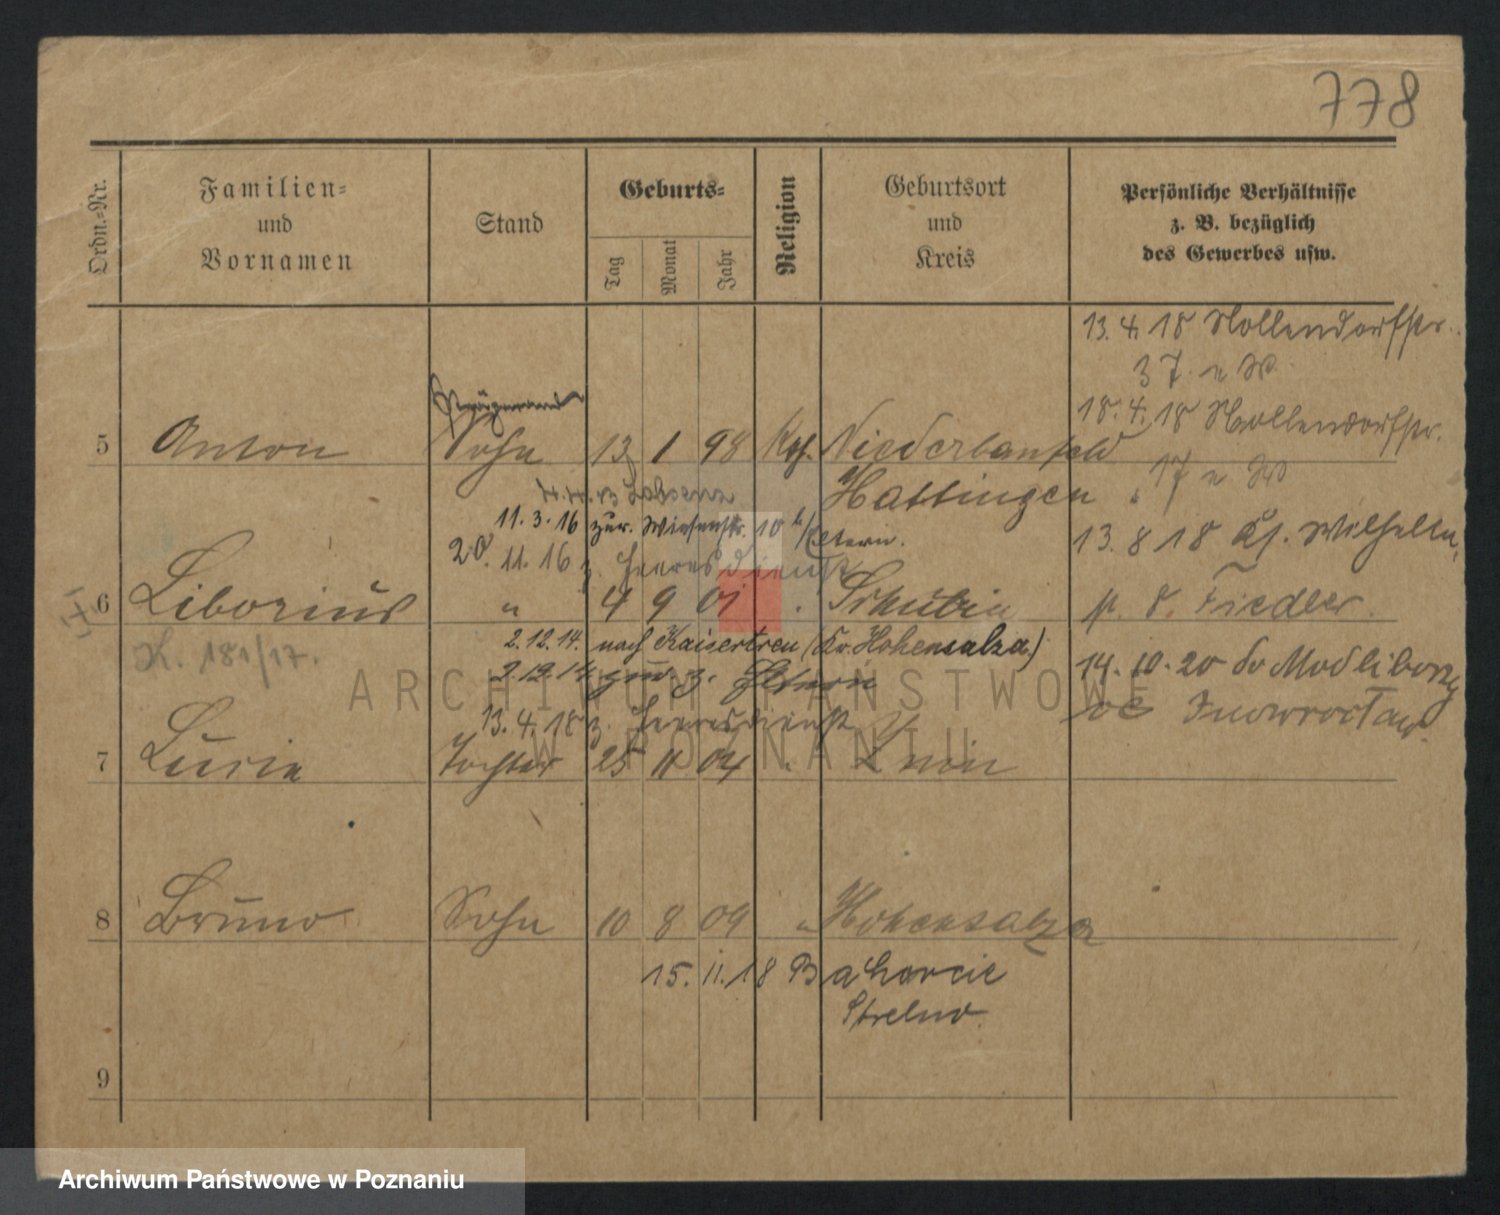 778
Ordn.-Nr.
Familien-
und
Vornamen
Stand
Geburts-
Tag
Monat
Jahr
Religion
Geburtsort
und
Kreis
Persönliche Verhältnisse
z. B. bezüglich
des Gewerbes usw.
13. 4. 18 Nollendorfstr.
37.
18. 4. 18 Nollendorfstr.
17
5 Anton Sohn 13 1 98 Kth. Niederbonsfeld
Hattingen
11. 3. 16 zur. Wiesenstr. 10 Eltern.
20. 11. 16 z. Heeresdienst
13. 8 18 Kf. Wilhelm
6 Liborius " 4 9 01 . Schubin
p. d. Fiedler.
K. 181/17.
2. 12. 14. nach Kaisertreu (Kr. Hohensalza)
2. 12. 14 z. Eltern
14. 10. 20 Modliborzyce
Inowroclaw
13. 4. 18 z. Heeresdienst
7 Lucie Tochter 25 11 04 " Znin
8 Bruno Sohn 10 8 09 " Hohensalza
15. 11. 18 Bachorcie
Strelno.
9
ARCHIWUM PAŃSTWOWE
W POZNANIU
Archiwum Państwowe w Poznaniu